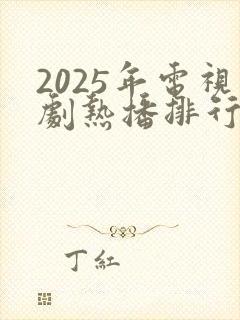 2025年電視
劇熱播排行
丁紅